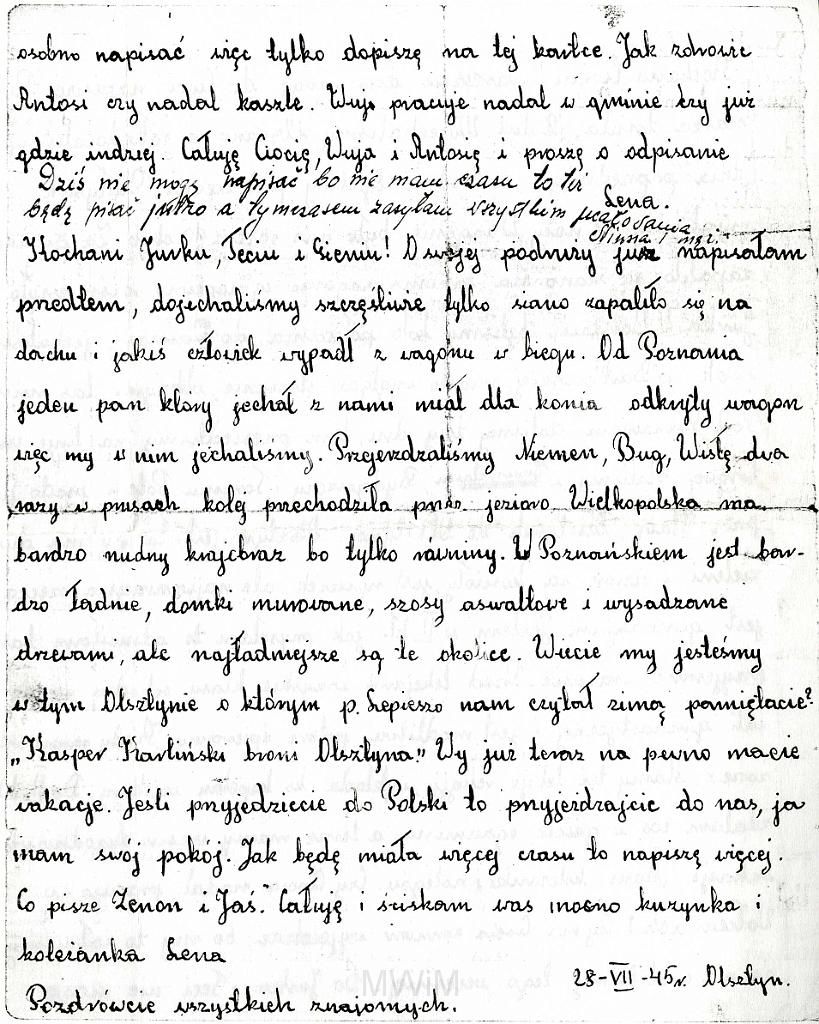 osobno napisać więc tylko dopiszę na tej kartce. Jak zdrowie
Antosi czy nadal kaszle. Wujo pracuje nadal w gminie czy już
gdzie indziej. Całuję Ciocię, Wuja i Antosię i proszę o odpisanie
Lena.
Dziś nie mogę napisać bo nie mam czasu to też
będę pisać jutro a tymczasem zasyłam wszystkim ucałowania
Kochani Jurku, Teciu i Gieniu! O swojej podróży już napisałam
przedtem, dojechaliśmy szczęśliwie tylko siano zapaliło się na
dachu i jakiś człowiek wypadł z wagonu w biegu. Od Poznania
jeden pan który jechał z nami miał dla konia odkryty wagon
więc my w nim jechaliśmy. Przejeżdzaliśmy Niemen, Bug, Wisłę dwa
razy w prusach kolej przechodziła przez jezioro Wielkopolska ma
bardzo nudny krajobraz bo tylko równiny. W Poznańskiem jest bar-
dzo ładnie, domki murowane, szosy aswaltowe i wysadzane
drzewami, ale najładniejsze są te okolice. Wiecie my jesteśmy
w tym Olsztynie o którym p. Lepieszo nam czytał zimą pamiętacie?
„Kasper Karliński broni Olsztyna." Wy już teraz na pewno macie
wakacje. Jeśli przyjedziecie do Polski to przyjerdzajcie do nas, ja
mam swój pokój. Jak będę miała więcej czasu to napiszę więcej.
Co pisze Zenon i Jaś. Całuję i ściskam was mocno kuzynka i
koleżanka Lena
28-VII-45r. Olsztyn.
Pozdrówcie wszystkich znajomych.
MWiM